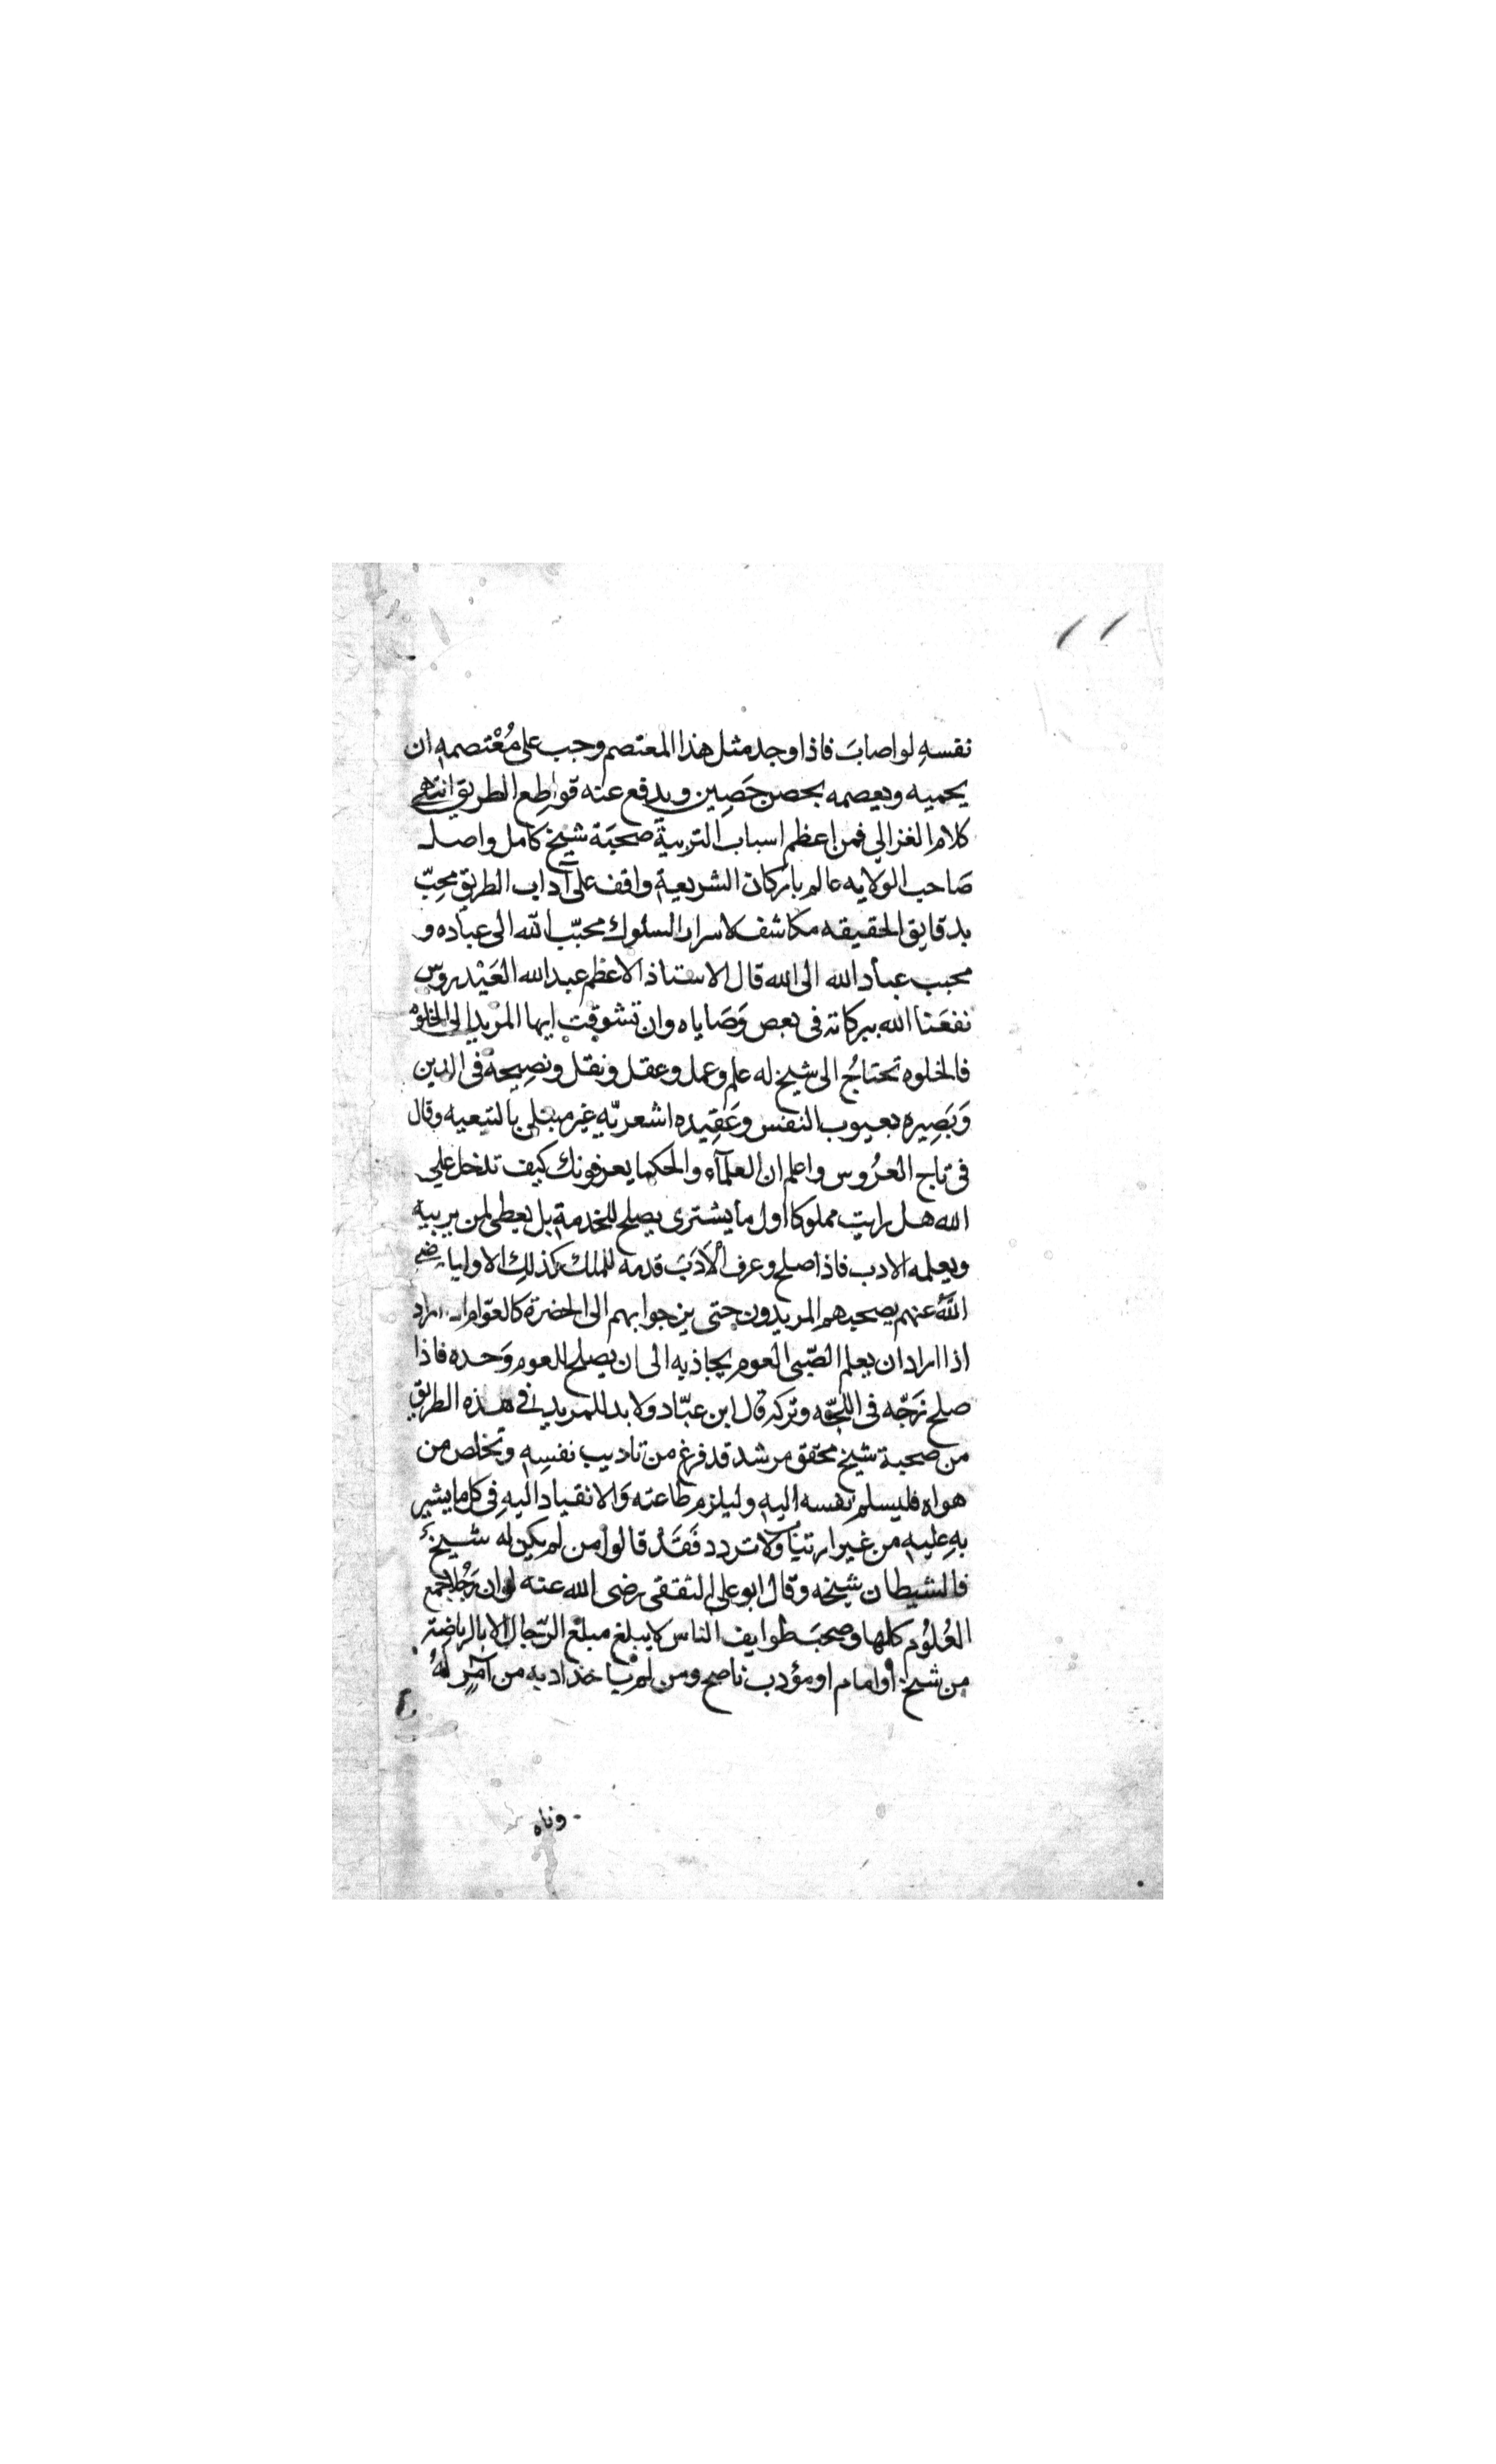 ١١
نفسهِ لو اصابَ فاذا وجد مثل هذا المعتصم وجب على مُعْتصمه ان
يحميه ويعصمه بحصن حَصِين ويدفع عنه قواطع الطريق انتهى
كلام الغزالي فمن اعظم اسباب التربية صحبَة شيخ كامل واصل
صَاحب الولايه عالم باركان الشريعة واقف على آداب الطريق محبّ
بدقايق الحقيقه مكاشف لاسرار السلوك محبّب الله الى عباده و
محبب عباد الله الى الله قال الاستاذ الاعظم عبد الله العَيْدروس
نفعَنا الله ببركاته في بعض وَصَاياه وان تشوقت ايها المريد الى الخلوه
فالخلوه تحتاجُ الى شيخ له علم وعمل وعقل ونقل ونصِيحة في الدين
وَبَصِيره بعيوب النفس وعَقِيده اشعريّه غير مبتلى بالتبعيه وقال
في تاج العرُوس واعلم ان العلمآء والحكما يعرفونك كيف تدخل علي
الله هل رايت مملوكا اول ما يشترى يصلح للخدمة بل يعطى لمن يربيه
ويعلمه الادب فاذا صلح وعرف الْاَدَبَ قدمه للملك كذلك الاوليا رضي
اللهُ عنهم يصحبهم المريدون حتى يزجوا بهم الى الحضرة كالعوّام اراد
اذا اراد ان يعلم الصّبى العوم يحاذيه الى ان يصلح للعوم وَحده فاذا
صلح زجّه في اللجّه وتركه قال ابن عبّاد ولا بد للمريد في هذه الطريق
من صحبة شيخ محقق مرشد قد فرغ من تاديب نفسِه وتخلص من
هواه فليسلم نفسه اليه وليلزم طاعته وَالانقياد اليهِ في كل ما يشير
بهِ عليه من غير ارتياب ولا تردد فَقَدْ قالوا من لم يكن له شيخٌ
فالشيطان شيخه وقال ابو علي الثقفى رضى الله عنه لو ان رَجُلا جمع
العُلوُم كلها وصحبَ طوايف الناس لا يبلغ مبلغ الرّجال الا بالرياضة
من شيخ او امام او مؤدب ناصح ومن لم ياخذ ادبه من آمرٍ لهُ
وناه